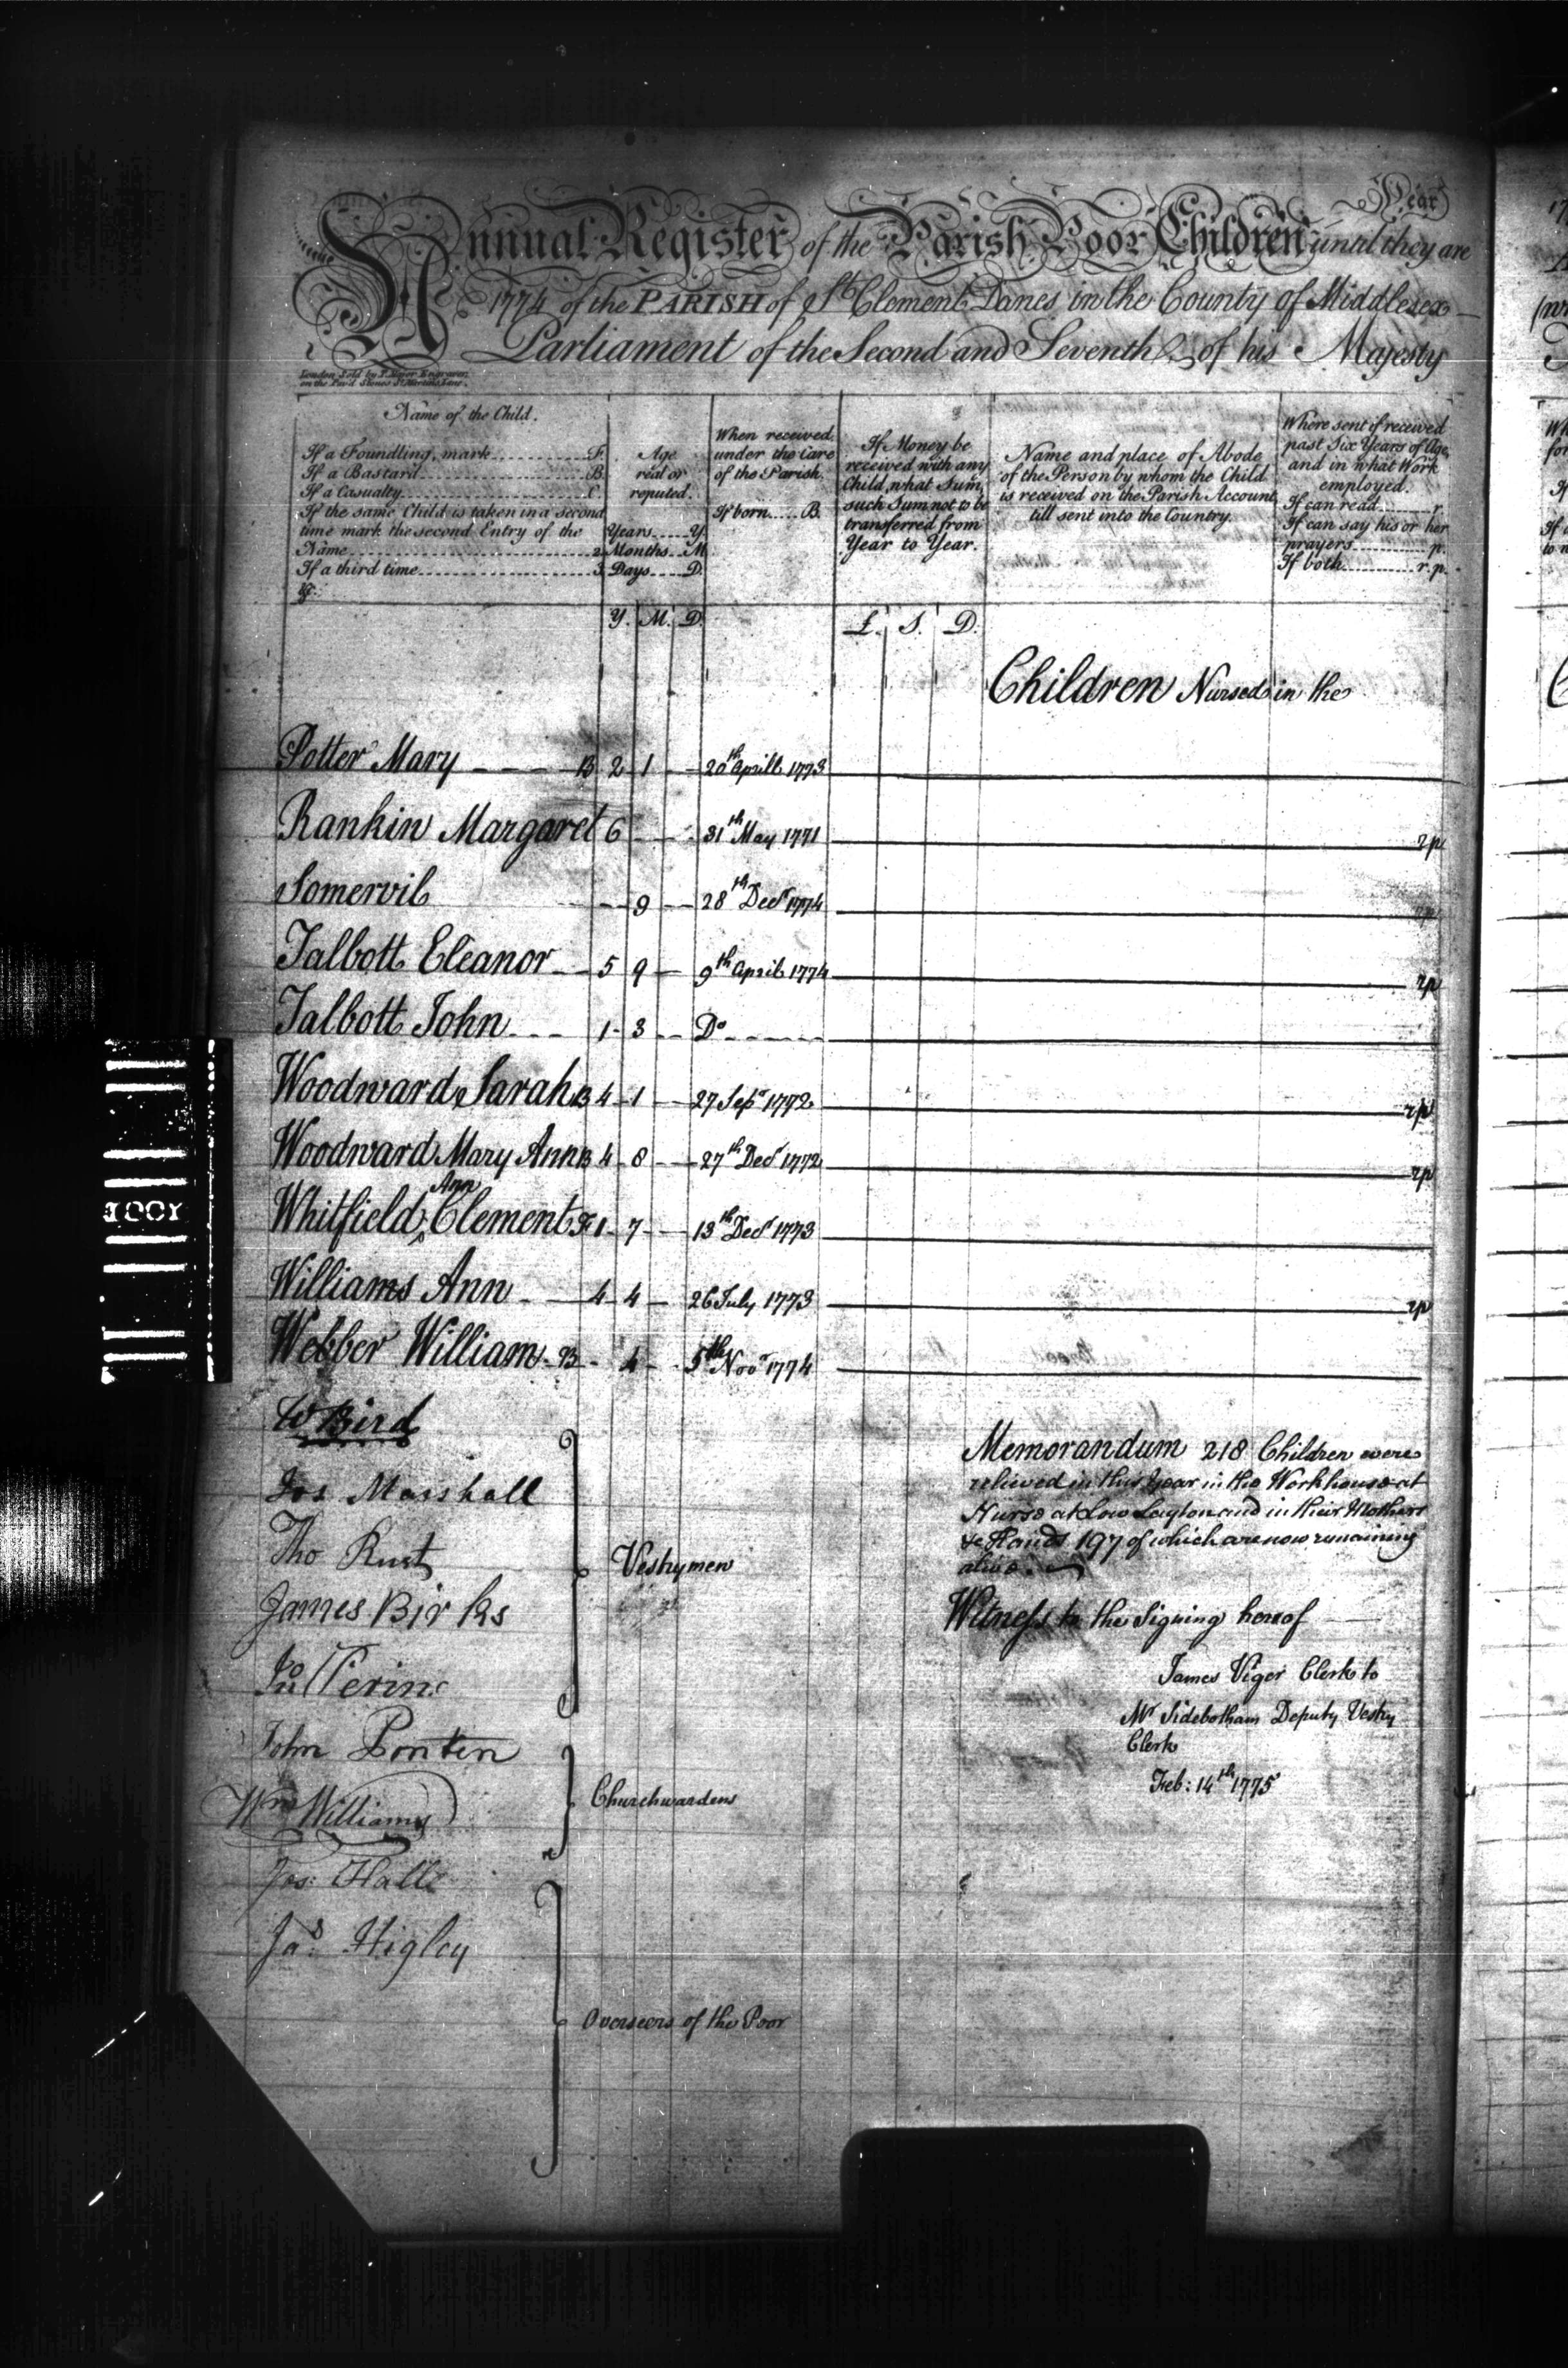 Year
Annual Register of the Parish Poor Children until they are
1774 of the PARISH of St. Clement Danes in the County of Middlesex
Parliament of the Second and Seventh of his Majesty
London Sold by
on the Pav'd Stones St. Martins Lane.
Name of the Child.
If a Foundling, mark F.
If a Bastard B.
If a Casualty C.
If the same Child is taken in a second
time mark the second Entry of the
Name 2.
If a third time 3.
&c.
Age
real or
reputed.
Years Y.
Months M.
Days D.
When received
under the Care
of the Parish.
If born B.
If Money be
received with any
Child, what Sum,
such Sum not to be
transferred from
Year to Year.
Name and place of Abode
of the Person by whom the Child
is received on the Parish Account
till sent into the Country.
Where sent if received
past Six Years of Age,
and in what Work
employed.
If can read r.
If can say his or her
prayers p.
If both r.p.
Y. M. D. £. S. D.
Children Nursed in the
Potter Mary B 2 1 20th Aprill 1773
Rankin Margaret 6 31th May 1771 rp
Somervil 9 28th Decr 1774 rp
Talbott Eleanor 5 9 9th April 1774 rp
Talbott John 1 3 Do
Woodward Sarah B 4 1 27 Sepr 1772 rp
Woodward Mary Ann B 4 8 27th Decr 1772 rp
Ann
Whitfield ^ Clement F 1 7 13th Decr 1773
Williams Ann 4 4 26 July 1773 rp
Webber William B 4 5th Novr 1774
W Bird
Jos Marshall
Tho Rust
James Birks
Jno Perin
Vestrymen
John Ponten
Wm Williams
Churchwardens
Jos: Hall
Jas Higley
Overseers of the Poor
Memorandum 218 Children were
relieved in this Year in the Workhouse at
Nurse at Low Layton and in their Mothers
&c Hands 197 of which are now remaining
alive.
Witness to the Signing hereof
James Viger Clerk to
Mr Sidebotham Deputy Vestry
Clerk
Feb: 14th 1775